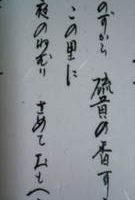 のづから
硫黄の香す
この里に
夜のねむり
さめておもへ